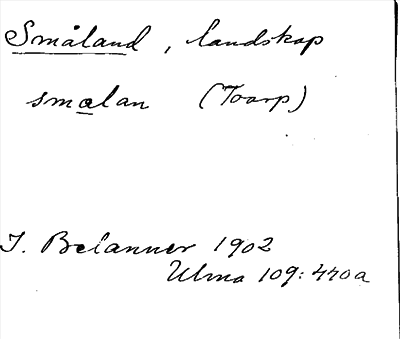 Småland, landskap
smalan (Toarp)
J. Belanner 1902
Ulma 109: 470a